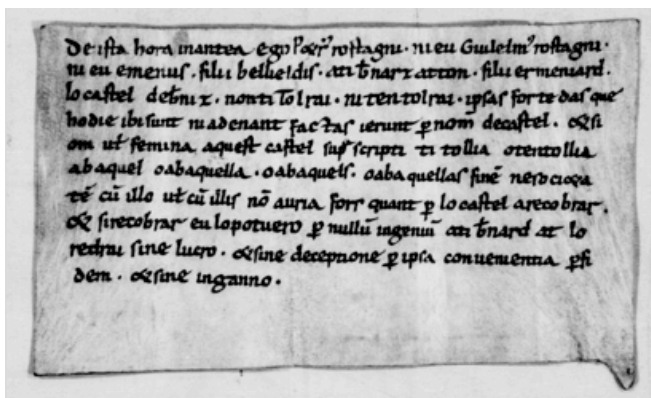 De ista hora inantea ego P&r' rostagni · ni eu Guilelm' rostagni ·
ni eu emenus · filii bellieldis · ati b̄nart atton · filii ermeniard ·
lo castel de b̄niz · non ti tolrai · ni ten tolrai · ipsas fortedas que
hodie ibi sunt ni adenant factas ierunt p̱ nom̄ de castel · & si
om ut̄ femina aquest castel sup̱ scripti ti tollia o ten tollia
ab aquel o ab aquella · o ab aquels · o ab aquellas finē ne so
tē cū illo ut̄ cū illis nō auria fors quant p̱ lo castel a recobrar ·
& si recobrar eu lo potuero p̱ nullū ingeniū ati b̄nard at lo
redrai sine lucro · & sine deceptione p̱ ipsa convenientia p̱ fi
dem · & sine inganno ·